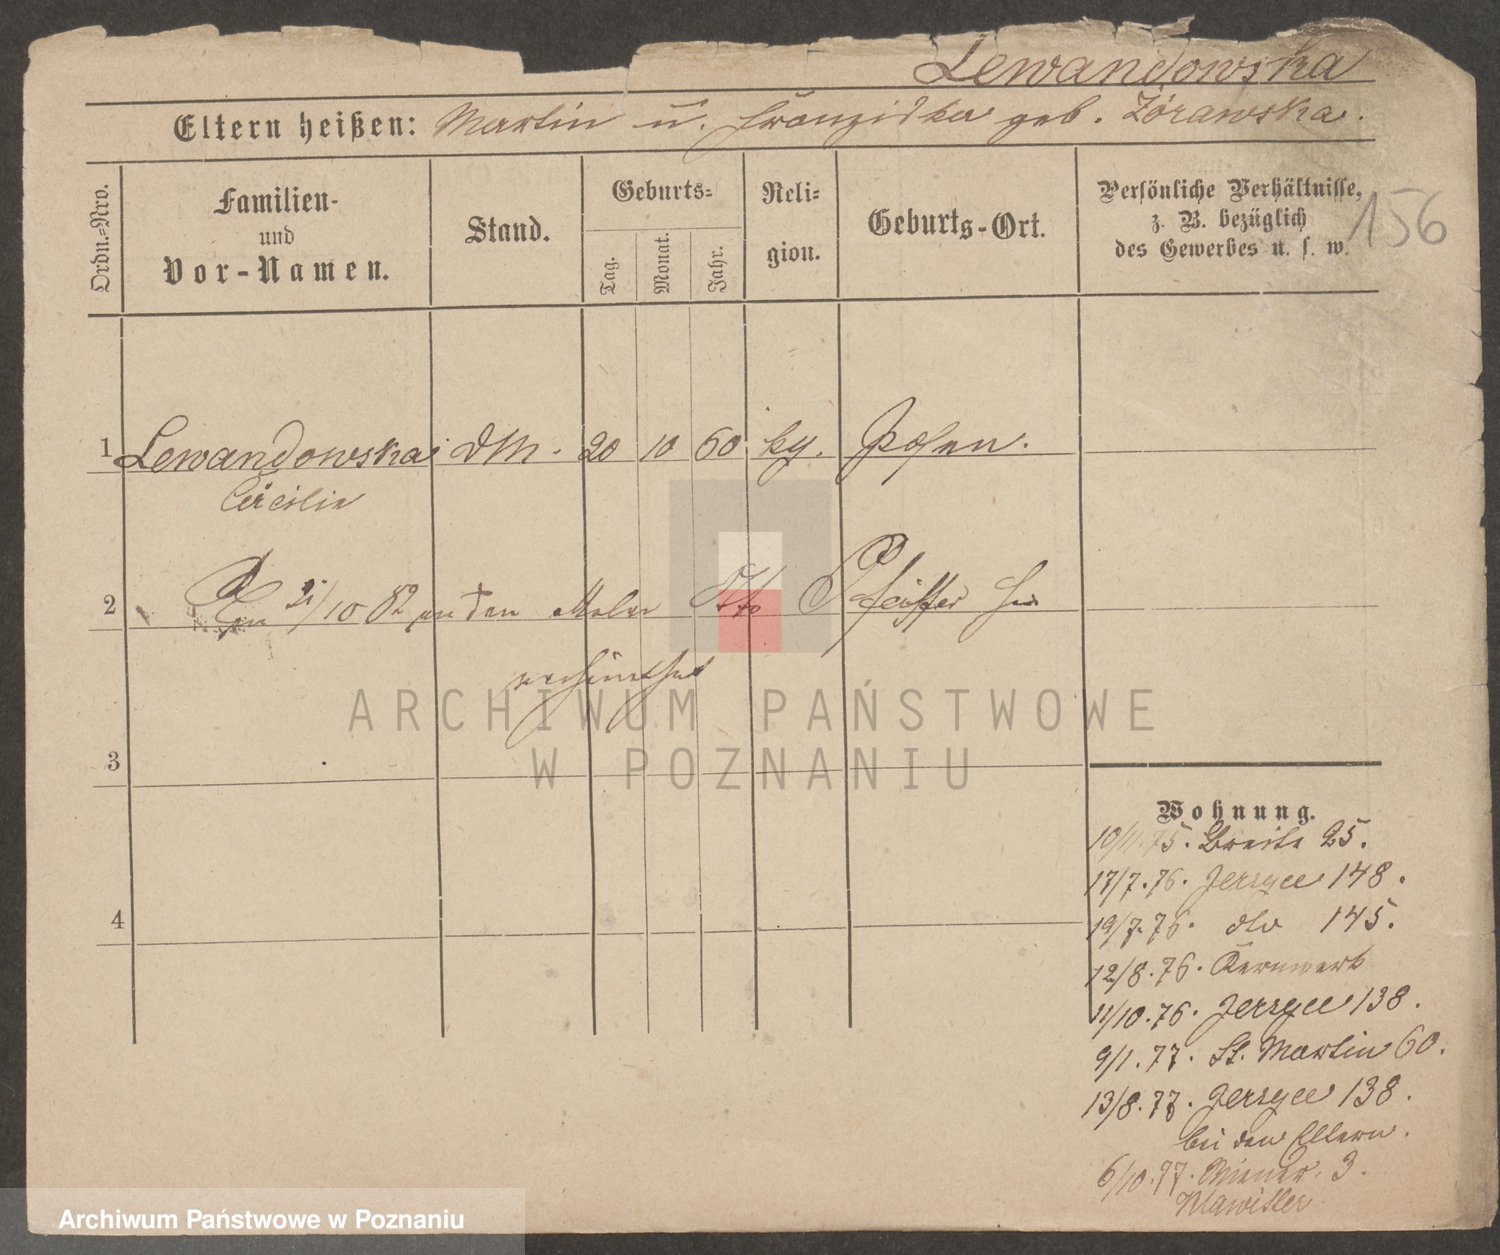 Lewandowska
Eltern heißen: Martin u. Franziska geb. Zórawska.
156
Ordn.=Nro.
Familien-
und
Vor-Namen.
Stand.
Geburts=
Tag.
Monat.
Jahr.
Reli=
gion.
Geburts-Ort.
Persönliche Verhältnisse,
z. B. bezüglich
des Gewerbes u. s. w.
1 Lewandowska DM. 20 10 60 kg. Posen.
Cäcilie
2
/10 82 an den Maler Otto Pfeiffer
verheirathet
3
4
Wohnung.
10/11.75. Breite 25.
17/7.76. Jersyce 148.
19/7.76. dto 145.
12/8.76. Kernwerk
11/10.76. Jersyce 138.
9/1.77. St. Martin 60.
13/8.77. Jersyce 138.
bei den Eltern.
6/10.77. Wiener. 3.
ARCHIWUM PAŃSTWOWE
W POZNANIU
Archiwum Państwowe w Poznaniu